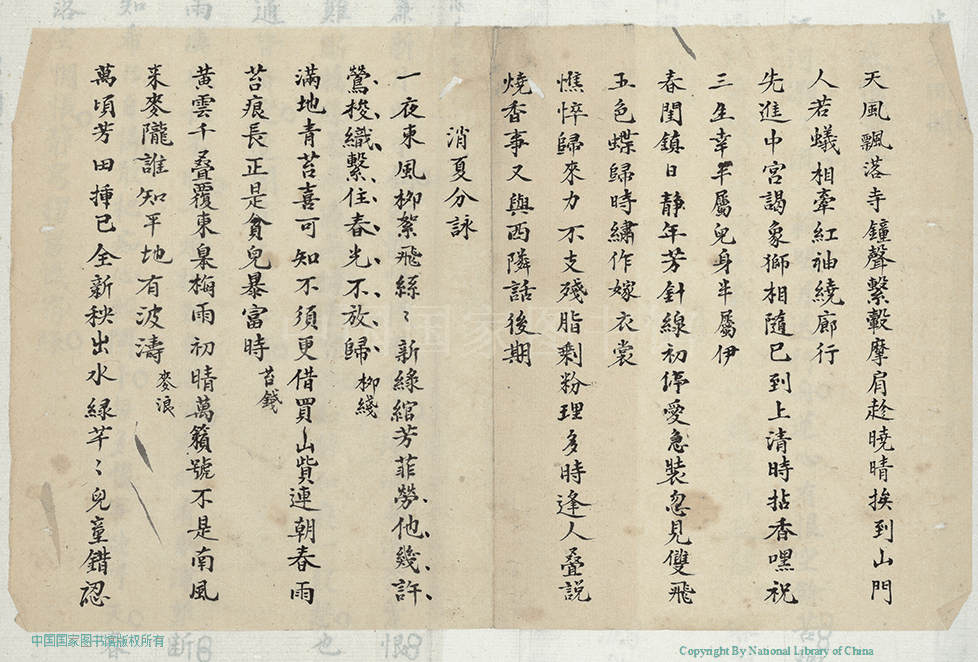 天風飄落寺鐘聲繫轂摩肩趁曉晴挨到山門
人若蟻相牽紅袖繞廊行
先進中宮謁象獅相隨已到上清時拈香嘿祝
三生幸半屬兒身半屬伊
春閨鎮日靜年芳針線初停愛急裝忽見雙飛
五色蝶歸時繡作嫁衣裳
憔悴歸來力不支殘脂剩粉理多時逢人疊説
燒香事又與西隣話後期
消夏分詠
一夜東風柳絮飛絲〻新綠綰芳菲勞他幾許
鶯梭織繫住春光不放歸 柳綫
滿地青苔喜可知不須更借買山貲連朝春雨
苔痕長正是貧兒暴富時 苔錢
黃雲千疊覆東臯梅雨初晴萬籟號不是南風
來麥隴誰知平地有波濤 麥浪
萬頃芳田揷已全新秧出水綠芊〻兒童錯認
中国国家图书馆版权所有
Copyright By National Library of China